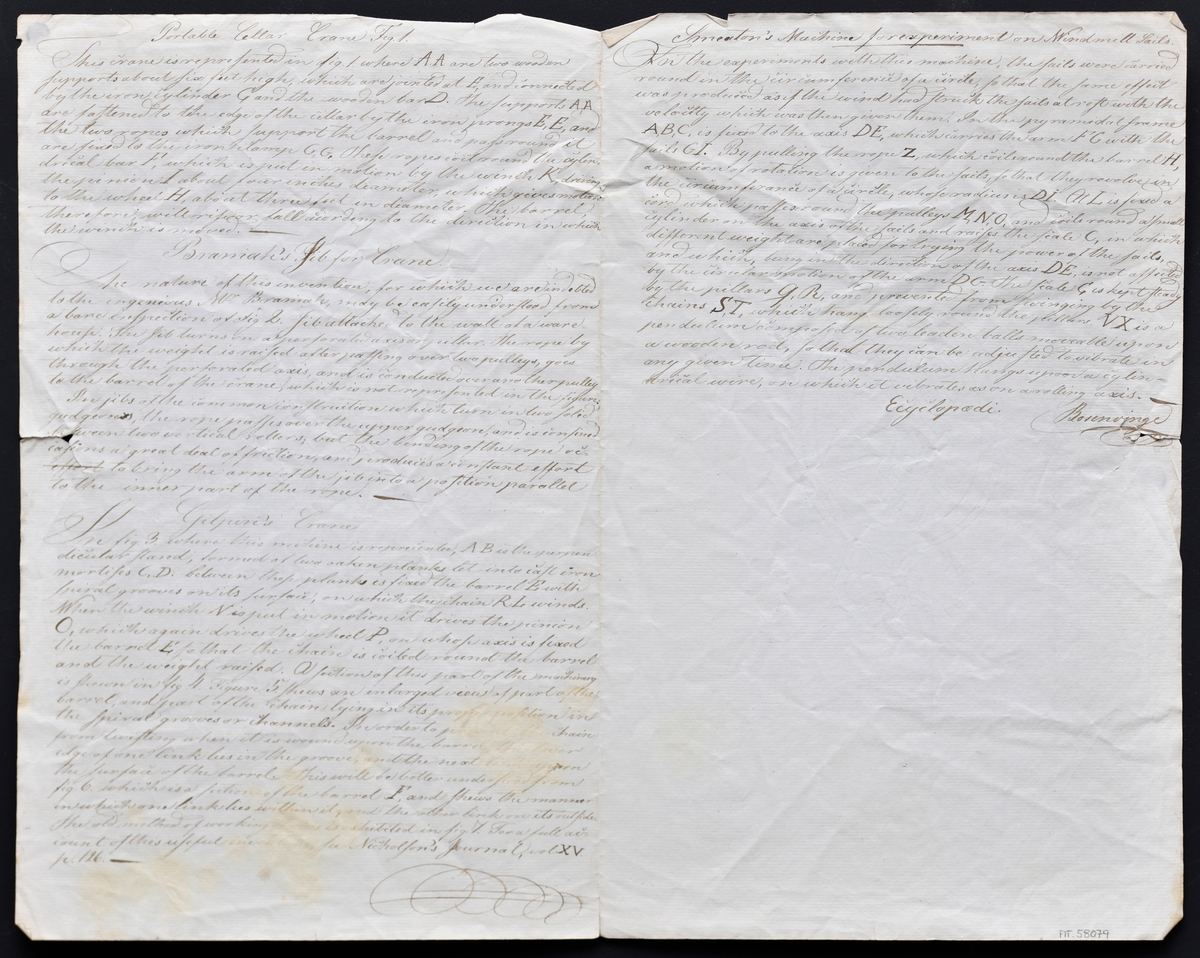 Portable Cellar Crane Fig 1.
This crane is represented in fig. 1. where AA are two wooden
supports about six feet high, which are jointed at E, and connected
by the iron cylinder G and the wooden bar D. the supports AA
are fastened to the edge of the cellar by the iron prongs E, E, and
the two ropes which support the barrel, and pass round it
are fixed to the iron clamp G G. These ropes coil round the cylin,
drical bar F, which is put in motion by the winch, K, driving
the pinion I, about four inches diameter, which gives motion
to the wheel H, about three feet in diameter. The barrel,
therefore, will rise or, fall acording to the direction in which
the winch is moved. —
Bramah's Jib for Crane
The nature of this invention, for which we are indebted
to the ingenious Mr Bramah, may be easily understood from
a bare inspection of fig 2. jib attached to the wall of a ware
house. The jib turns on a perforated axis or pillar. The rope by
which the weight is raised after passing over two pulleys, goes
through the perforated axis, and is conducted over another pulley
to the barrel of the crane, which is not represented in the figure.
In jibs of the common construction which turn in two solid
gudgeons, the rope passes over the upper gudgeon, and is confined
between two vertical rollers, but the bending of the rope oc-
casions a great deal of friction, and produces a constant effort
effort to bring the arm of the jib into a position parallel
to the inner part of the rope. —
Gilpin's Crane
In fig 3. where this machine is represented, AB is the perpen
dicular stand, formed of two oaken planks let into cast iron
mortises C, D. between these planks is fixed the barrel E with
spiral grooves on its surface, on which the chain RL winds.
When the winch N is put in motion it drives the pinion
O, which again drives the wheel P, on whose axis is fixed
the barrel E so that the chain is coiled round the barrel
and the weight raised. A section of this part of the machinery
is shewn in fig 4. Figure 5 shews an enlarged view of part of the
barrel, and part of the chain lying in its proper position in
the spiral grooves or channels. In order to chain
from twisting when it is wound upon the barrel, the lower
edge of one link lies in the groove, and the next upon
the surface of the barrel. This will be better understood from
fig 6. which is a section of the barrel F, and shews the manner
in which one link lies within it, and the other link on its outside
The old method of working is exhibited in fig 7. For a full ac-
count of this useful see Nicholson's Journal, vol XV
p. 126. —
Smeaton's Machine for experiment on Windmill Sails.
In the experiments with this machine, the sails were carried
round in the circumference of a circle, so that the same effect
was produced as if the wind had struck the sails at rest with the
velocity which was then given them. In the pyramidal frame
ABC, is fixed to the axis DE, which carries the arm FG with the
sails GI. By pulling the rope Z, which coils round the barrel H,
a motion of rotation is given to the sails, so that they revolve in
the circumference of a circle, whose radius is DI. At L is fixed a
cord which passes round the pulleys M, N, O, and coils round a small
cylinder on the axis of the sails and raises the scale C, in which
different weight are placed for trying the power of the sails,
and which, being in the direction of the axis DE, is not affected
by the circular motion of the arm DG. The scale C is kept steady
by the pillars Q, R, and prevented from swinging by the
chains S T, which hang loosely round the pillars. VX is a
pendulum composed of two leaden balls movable upon
a wooden rod, so that they can be adjusted to vibrate in
any given time. The pendulum hangs upon a cylin-
drical wire, on which it vibrates as on a rolling axis. —
Ecyclopædi.
Bosenvinge
FIT. 58079